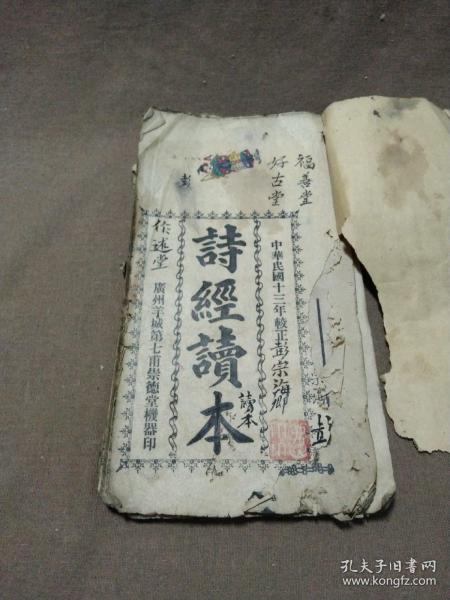 福善堂
好古堂
彭
中華民國十三年較正彭宗海鄉
詩經讀本
讀本
作述堂
廣州羊城第七甫崇德堂機器印
彭
孔夫子旧书网
www.kongfz.com